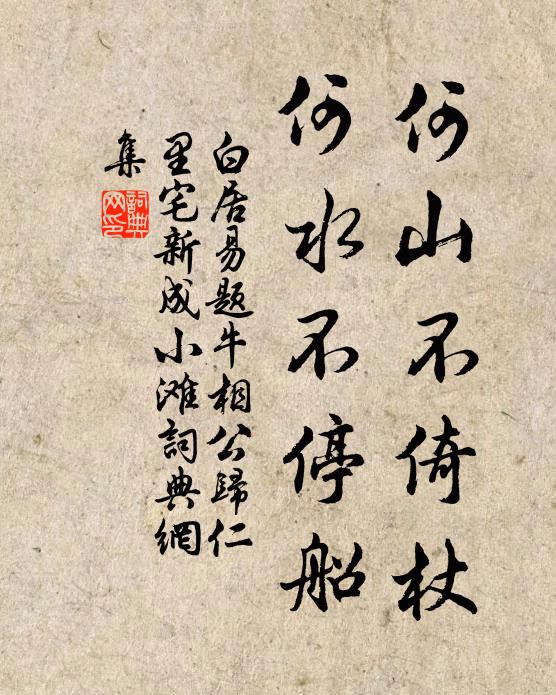 何山不倚杖
何水不停船
白居易题牛相公歸仁
里宅新成小滩詞典網
集
詞典
网印